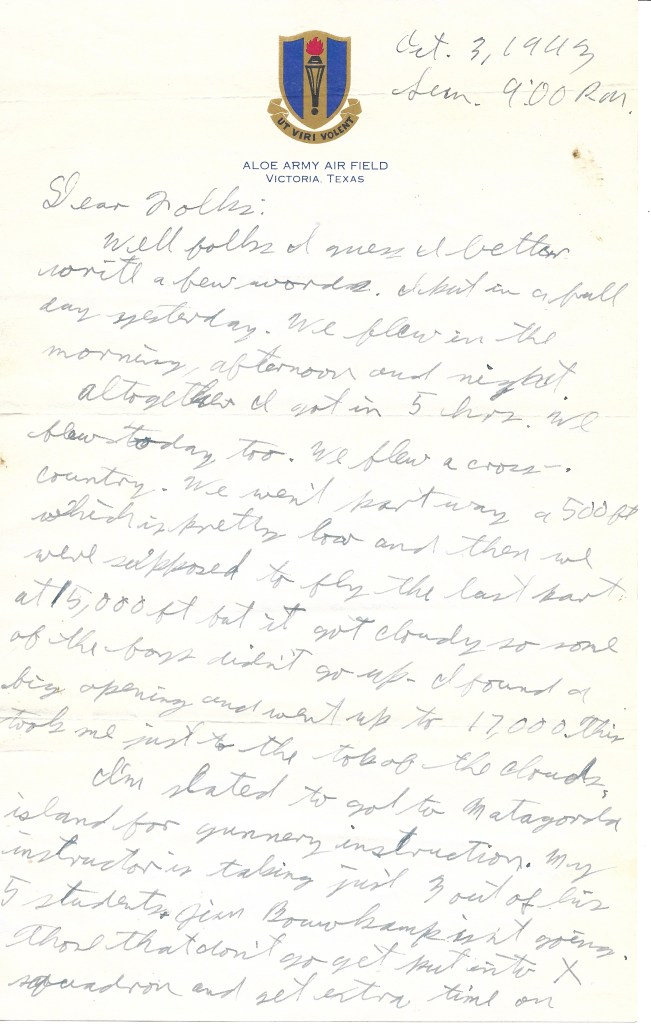 Oct. 3, 1943
Sun. 9:00 P.M.
UT VIRI VOLENT
ALOE ARMY AIR FIELD
VICTORIA, TEXAS
Dear Folks:
Well folks I guess I better
write a few words. I put in a full
day yesterday. We flew in the
morning, afternoon and night
altogether I got in 5 hrs. We
flew today too. We flew a cross-
country. We went part way a 500 ft
which is pretty low and then we
were supposed to fly the last part
at 15,000 ft but it got cloudy so some
of the boys didn't go up. I found a
big opening and went up to 17,000. This
took me just to the top of the clouds.
I'm slated to got to Matagorda
island for gunnery instruction. My
instructor is taking just 3 out of his
5 students. Jim Bouwkamp isn't going.
Those that don't go get put into X
squadron and get extra time on